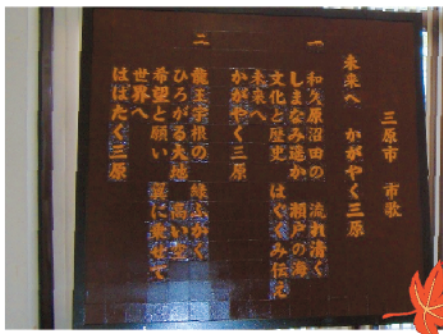 三原市 市歌
未来へ かがやく三原
一 和久原沼田の 流れ清く
しまなみ遥か 瀬戸の海
文化と歴史 はぐくみ伝え
未来へ
かがやく三原
二 龍王宇根の 緑ふかく
ひろがる大地 高い空
希望と願い 翼に乗せて
世界へ
はばたく三原